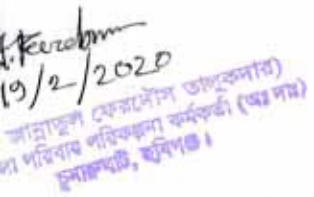 19/2/2020
জান্নাতুল ফেরদৌস তালুকদার)
পরিবার পরিকল্পনা কর্মকর্তা (অঃ দাঃ)
চুনারুঘাট, হবিগঞ্জ।